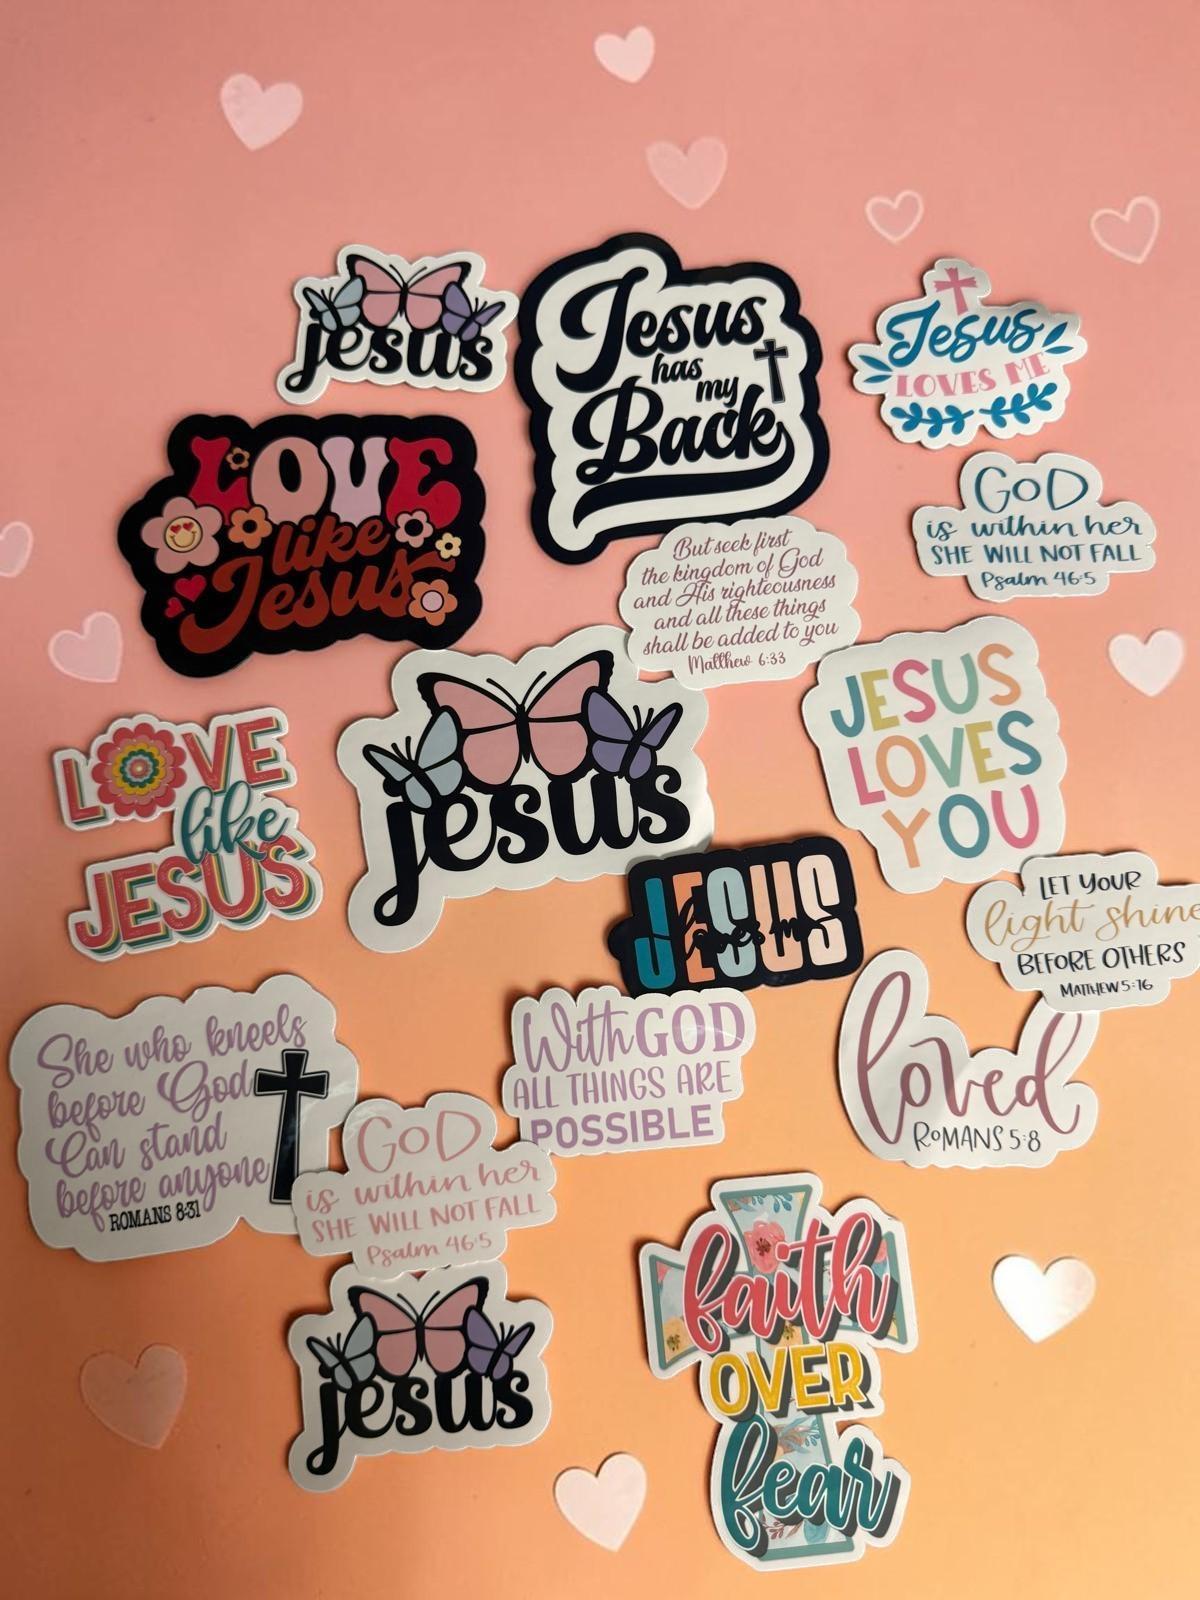 jesus
Jesus
has
my
Back
Jesus
LOVES ME
LOVE
like
Jesus
GOD
is within her
SHE WILL NOT FALL
Psalm 46:5
But seek first
the kingdom of God
and His righteousness
and all these things
shall be added to you
Matthew 6:33
jesus
JESUS
LOVES
YOU
LOVE
like
JESUS
JESUS
loves me
LET YOUR
light shine
BEFORE OTHERS
MATTHEW 5:16
She who kneels
before God
Can stand
before anyone
ROMANS 8:31
With GOD
ALL THINGS ARE
POSSIBLE
loved
ROMANS 5:8
GOD
is within her
SHE WILL NOT FALL
Psalm 46:5
jesus
faith
OVER
fear